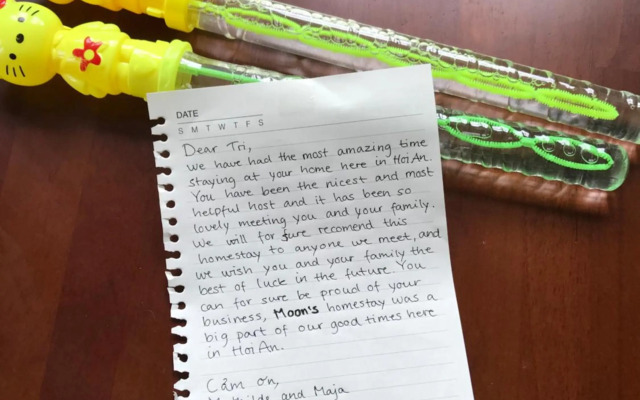 DATE
S M T W T F S
Dear Tri,
we have had the most amazing time
staying at your home here in Hoi An.
You have been the nicest and most
helpful host and it has been so
lovely meeting you and your family.
We will for sure recomend this
homestay to anyone we meet, and
we wish you and your family the
best of luck in the future. You
can for sure be proud of your
business, Moon's homestay was a
big part of our good times here
in Hoi An.
Cảm ơn,
and Maja